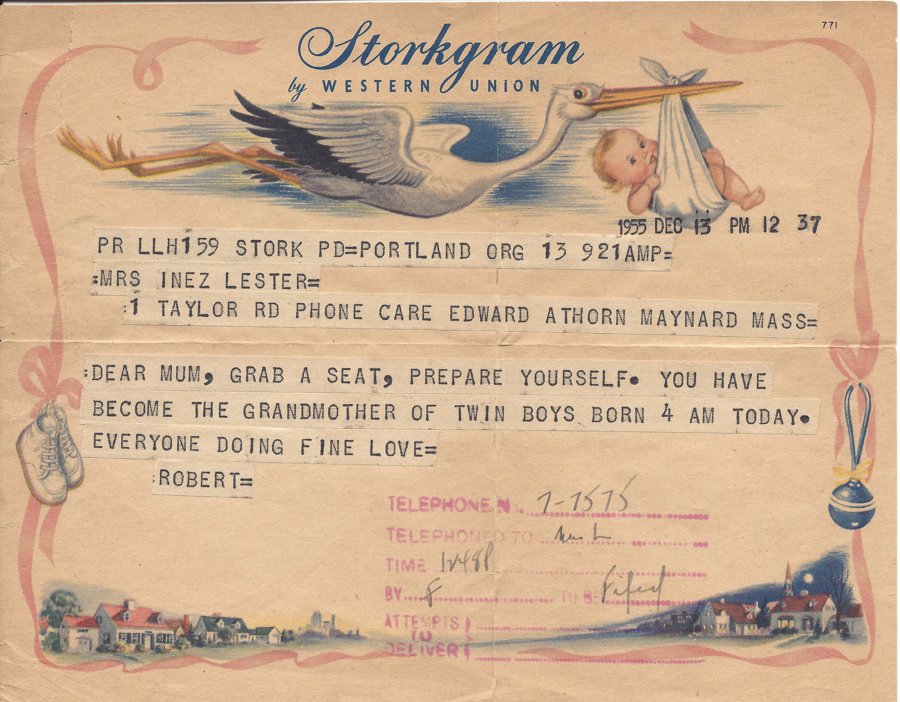 771
Storkgram
by WESTERN UNION
1955 DEC 13 PM 12 37
PR LLH159 STORK PD=PORTLAND ORG 13 921AMP=
:MRS INEZ LESTER=
:1 TAYLOR RD PHONE CARE EDWARD ATHORN MAYNARD MASS=
:DEAR MUM, GRAB A SEAT, PREPARE YOURSELF. YOU HAVE
BECOME THE GRANDMOTHER OF TWIN BOYS BORN 4 AM TODAY.
EVERYONE DOING FINE LOVE=
:ROBERT=
TELEPHONE N. 7-7575
TELEPHONED TO
TIME 1248P
BY TO BE
ATTEMPTS
TO
DELIVER